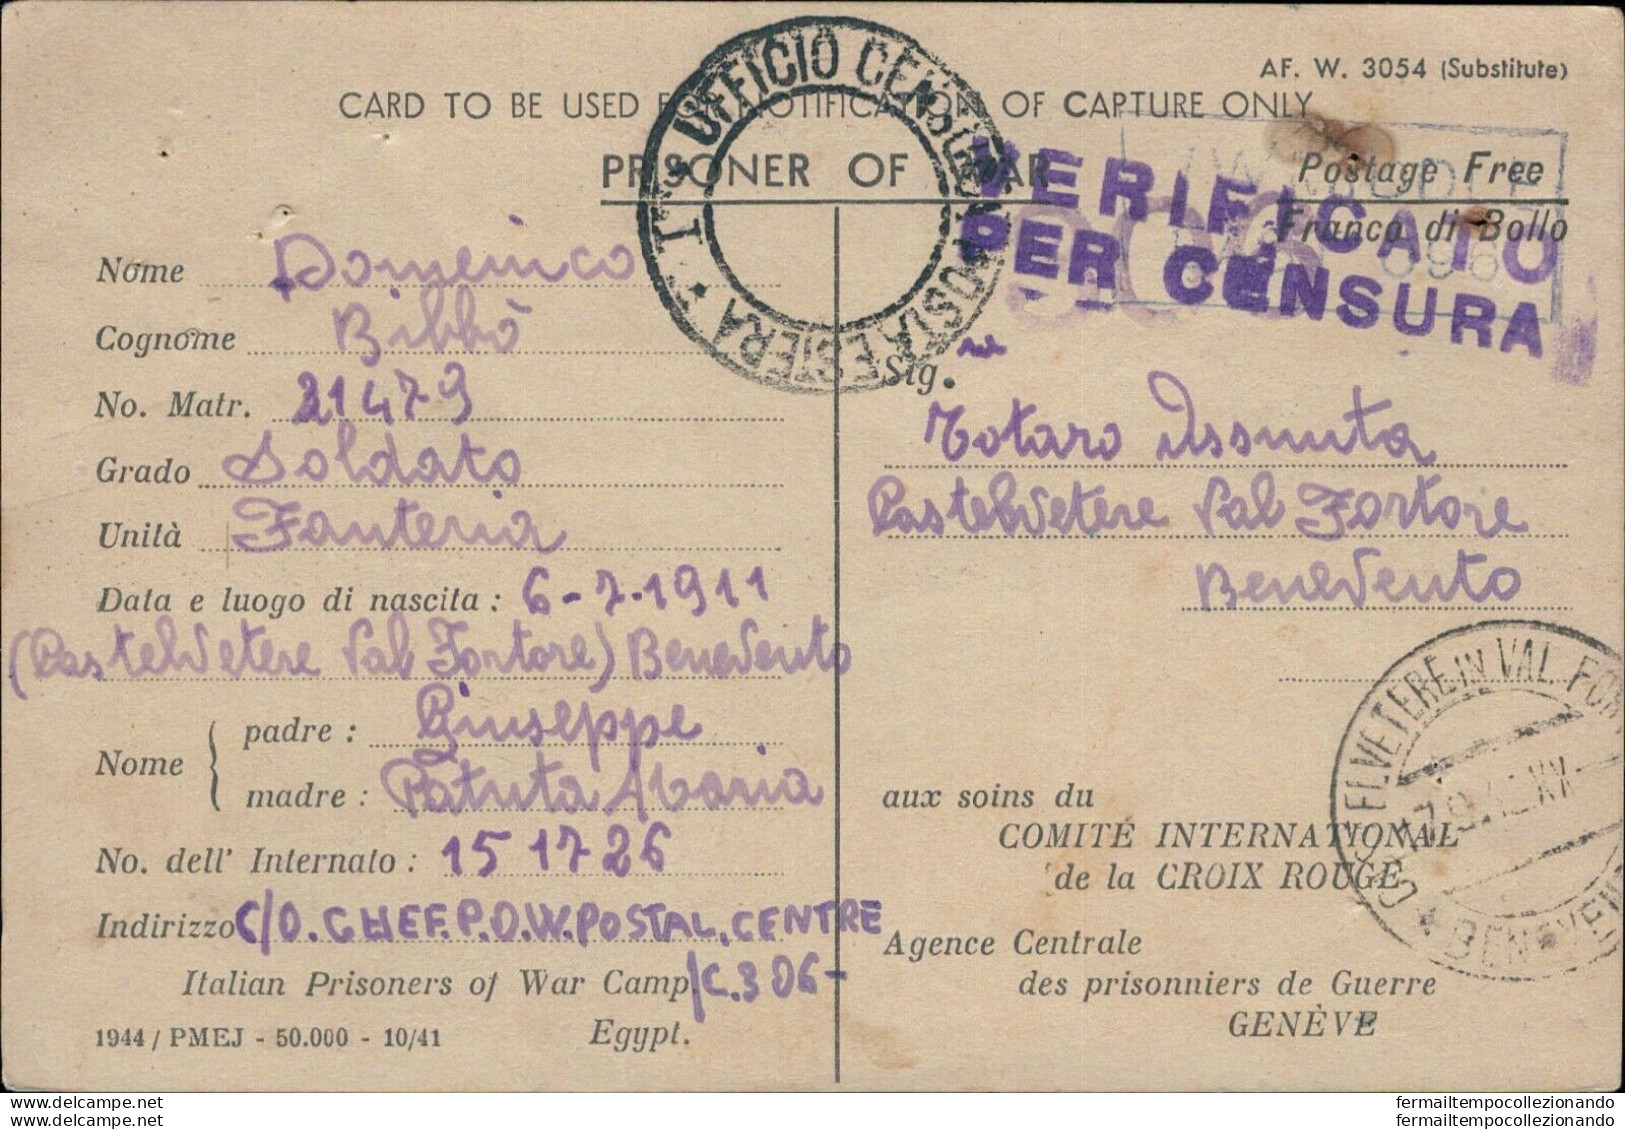 AF. W. 3054 (Substitute)
CARD TO BE USED FOR NOTIFICATION OF CAPTURE ONLY
PRISONER OF WAR
Postage Free
Franco di Bollo
UFFICIO CENSURA POSTA ESTERA
VERIFICATO
PER CENSURA
Nome Domenico
Cognome Bibbò
No. Matr. 21479
Grado Soldato
Unità Fanteria
Data e luogo di nascita : 6-7.1911
(Castelvetere Val Fortore) Benevento
Nome
padre : Giuseppe
madre : Patuta Maria
No. dell' Internato : 151726
Indirizzo C/O. CHEF.P.O.W.POSTAL.CENTRE
Italian Prisoners of War Camp /C.306-
Egypt.
1944 / PMEJ - 50.000 - 10/41
Sig. ra
Totaro Assunta
Castelvetere Val Fortore
Benevento
aux soins du
COMITÉ INTERNATIONAL
de la CROIX ROUGE
Agence Centrale
des prisonniers de Guerre
GENÈVE
ELVETERE IN VAL. FOR
7.9.42.XX
BENEVEN
www.delcampe.net
www.delcampe.net
fermailtempocollezionando
fermailtempocollezionando